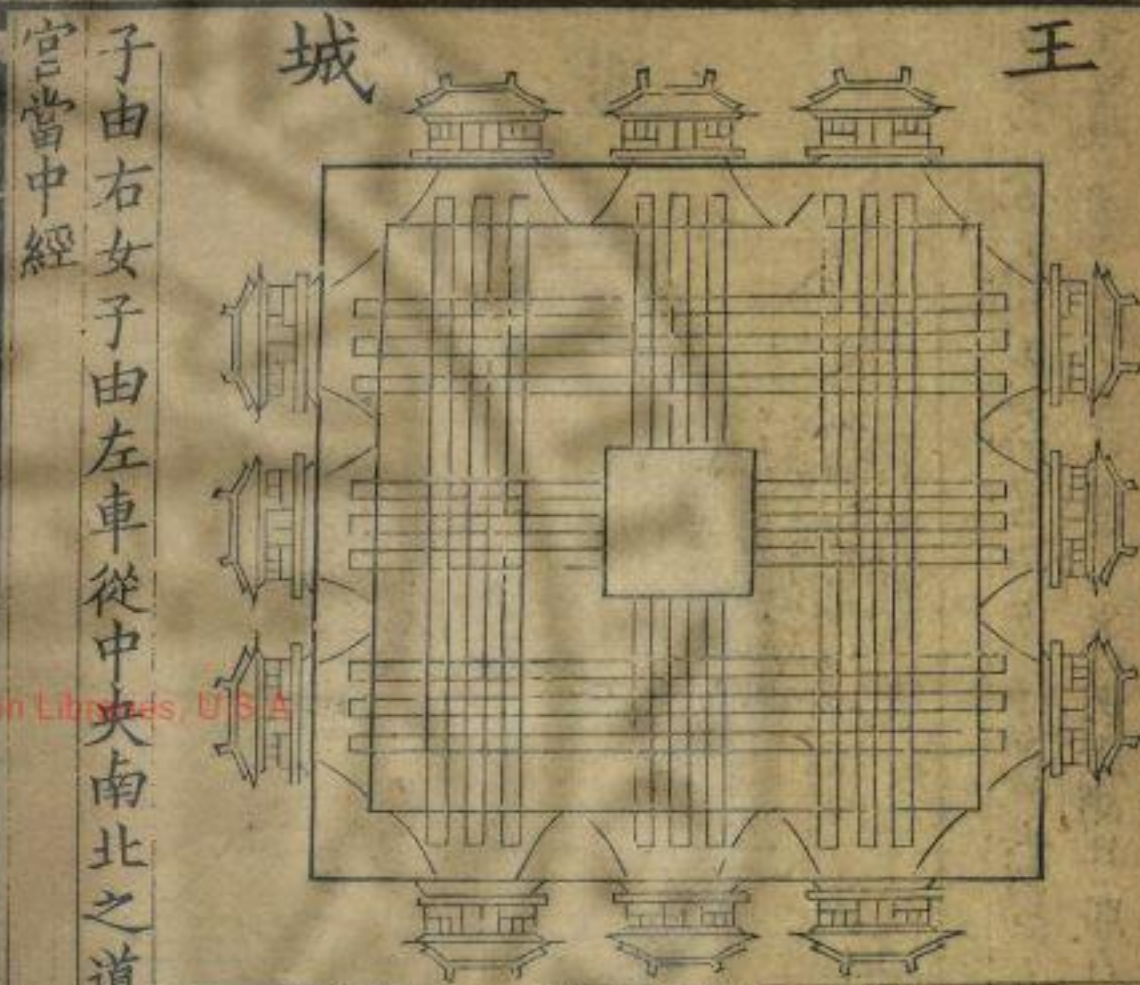 王城
子由右女子由左車從中央南北之道
宮當中經
on Libraries, U.S.A